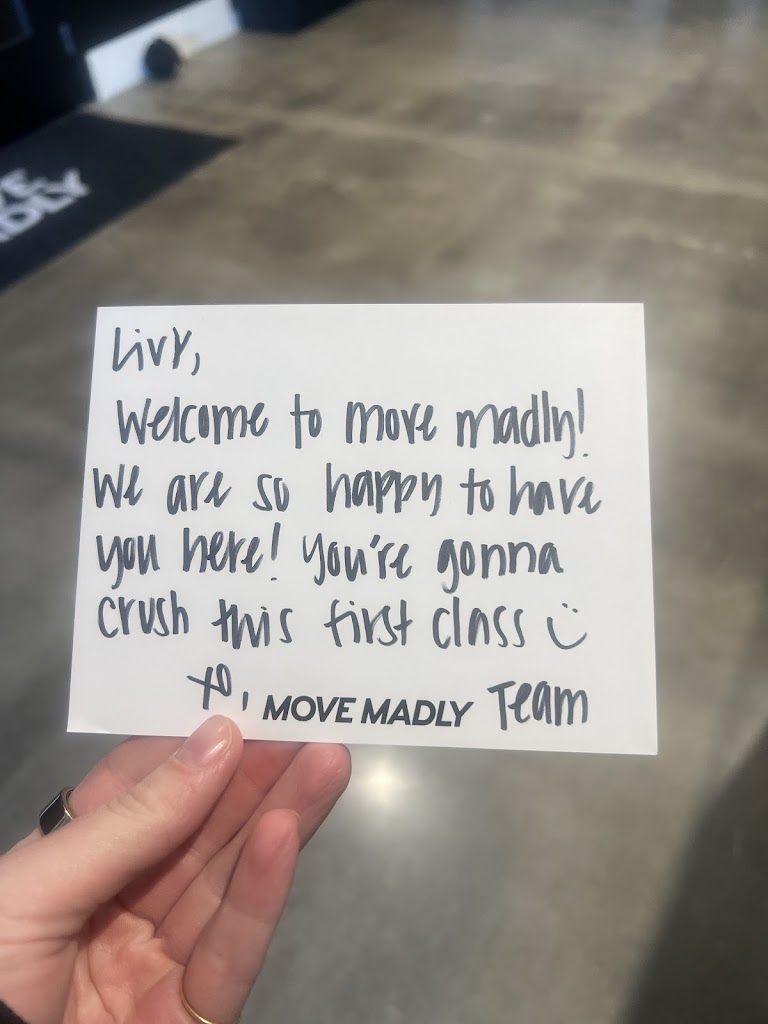 VE
DLY
Livy,
Welcome to move madly!
We are so happy to have
you here! You're gonna
crush this first class :)
xo, MOVE MADLY Team